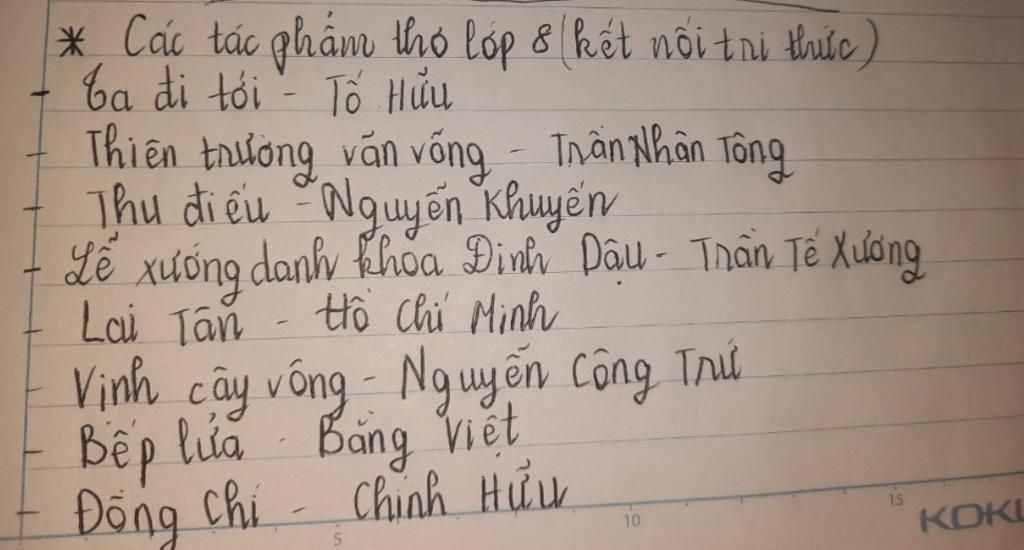 * Các tác phẩm thơ lớp 8 (kết nối tri thức)
- Ta đi tới - Tố Hữu
- Thiên trường vãn vọng - Trần Nhân Tông
- Thu điếu - Nguyễn Khuyến
- Lễ xướng danh khoa Đinh Dậu - Trần Tế Xương
- Lai Tân - Hồ Chí Minh
- Vịnh cây vông - Nguyễn Công Trứ
- Bếp lửa - Bằng Việt
- Đồng Chí - Chính Hữu
5 10 15 KOKU